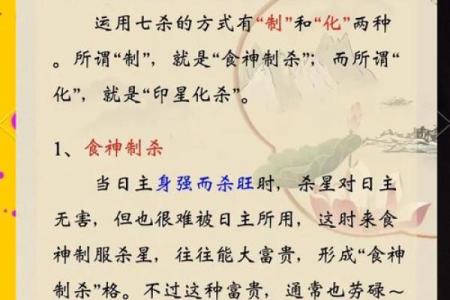 运用七杀的方式有“制”和“化”两种
。所谓“制”，就是“食神制杀”；而所谓“
化”，就是“印星化杀”。
1、食神制杀
当日主身强而杀旺时，杀星对日主
无害，但也很难被日主所用，这时来食
神制服杀星，往往能大富贵，形成“食神
制杀”格。不过这种富贵，通常也劳碌～